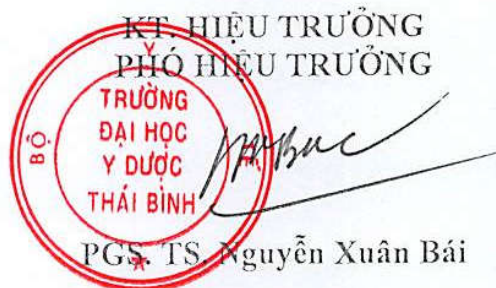 KT. HIỆU TRƯỞNG
PHÓ HIỆU TRƯỞNG
BỘ Y TẾ
TRƯỜNG
ĐẠI HỌC
Y DƯỢC
THÁI BÌNH
PGS. TS. Nguyễn Xuân Bái